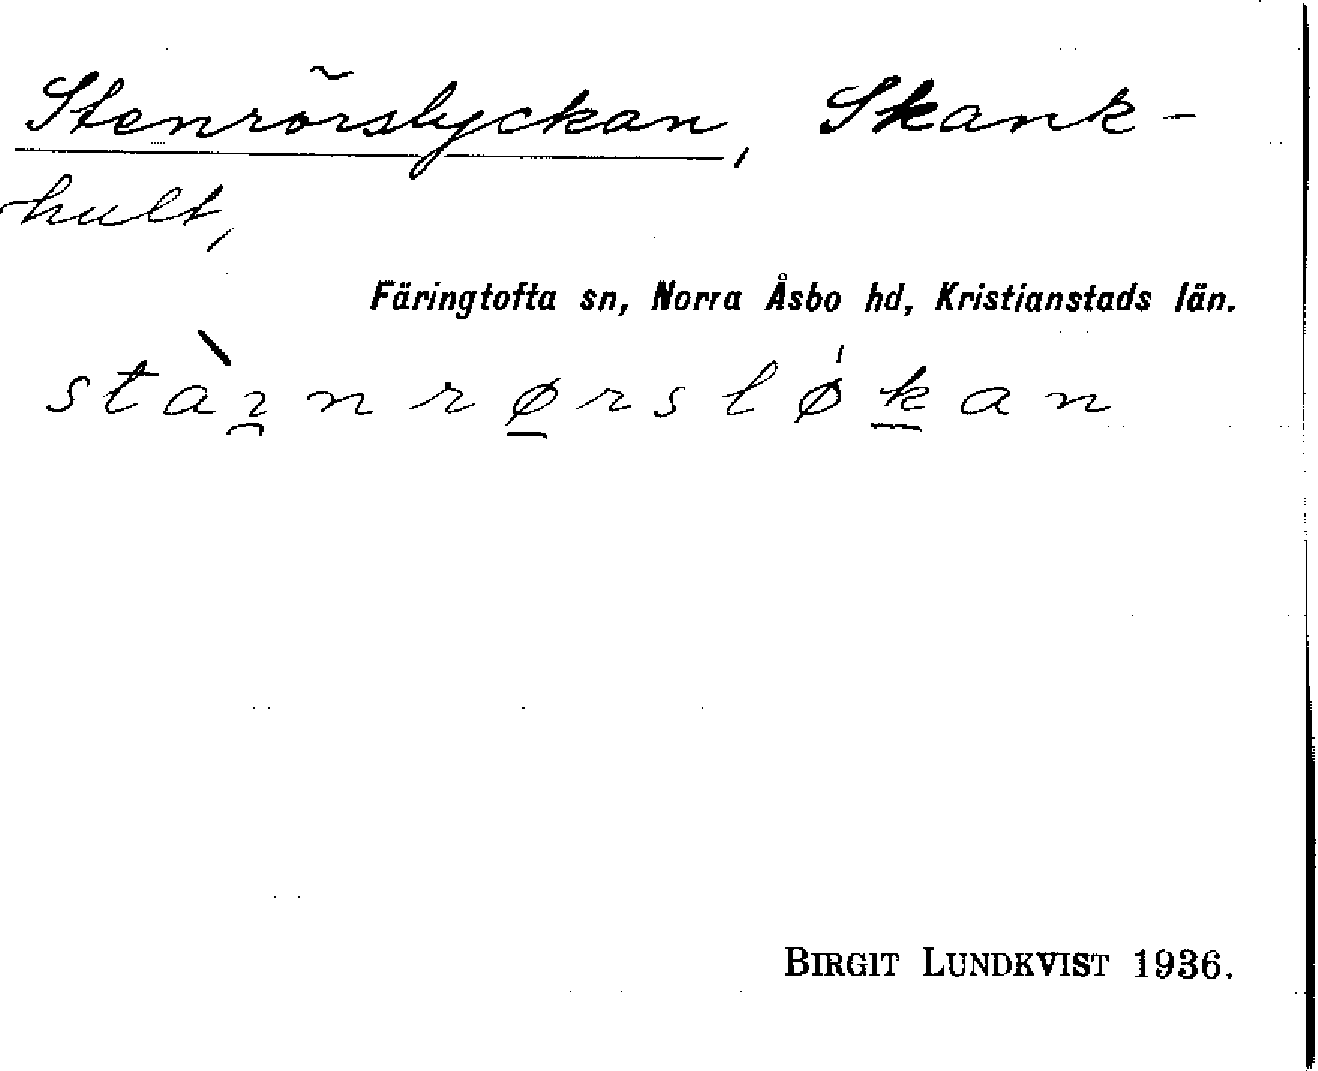 Stenrörslyckan, Skank-
hult,
Färingtofta sn, Norra Åsbo hd, Kristianstads län.
stàɿ̯nrø̱rslǿḵan
BIRGIT LUNDKVIST 1936.